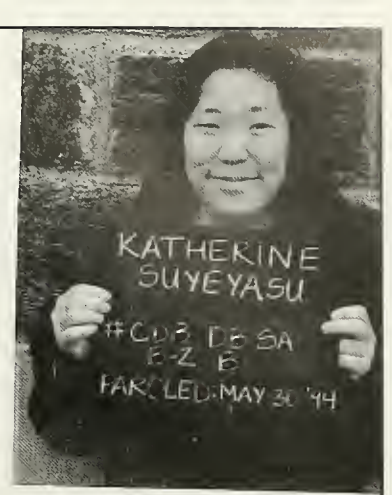 KATHERINE
SUYEYASU
#CDB DB SA
E-Z B
PAROLED: MAY 30 '94